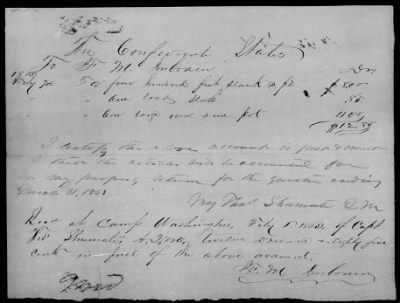 The Confederate States
To F. M. Imboden Dr
To four hundred feet plank @ pr $8.00
" one load slabs .85
" one 4.00
$12.85
I certify the above account is just & correct
& that the articles will be accounted for
in my property return for the quarter ending
March 31, 186
Shumate QM
Recd at Camp Washington, of Capt
Thos Shumate A.Q.M. twelve Dollars eighty five
cents in full of the above account.
F. M. Imboden